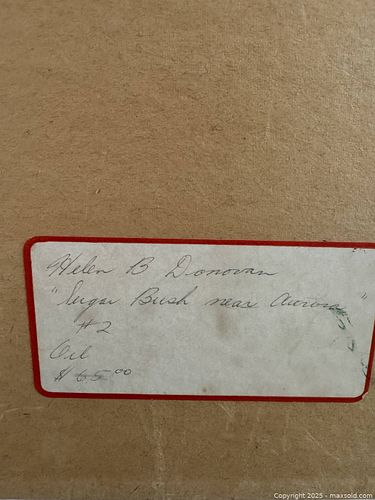 Helen B Donovan
"Sugar Bush near Aurora"
#2
Oil
$ 65.00
Copyright © 2025 - maxsold.com